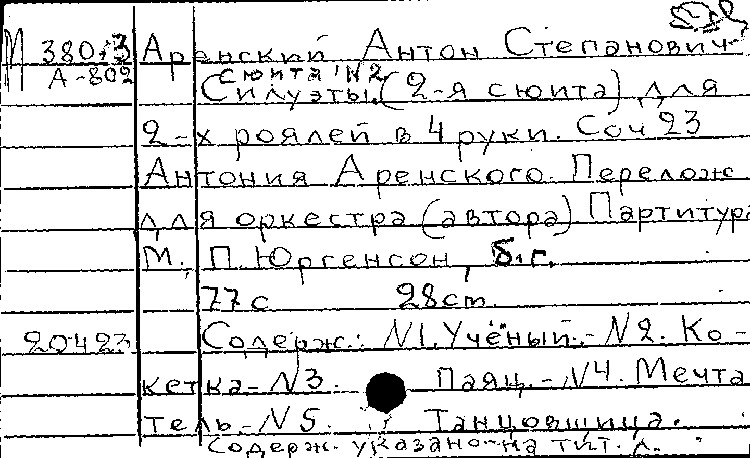 М 380.3 Аренский Антон Степанович
А-802 Сюита N2
Силуэты. (2-я сюита) для
2-х роялей в 4 руки. Соч 23
Антония Аренского. Перелож
для оркестра (автора) Партитура
М., П. Юргенсон, б.г.
77 с 28 ст.
20423 Содерж.: N1. Учёный.- N2. Ко-
кетка- N3. Паяц.- N4. Мечта
тель.- N5. Танцовщица.
Содерж. указано на тит. л.